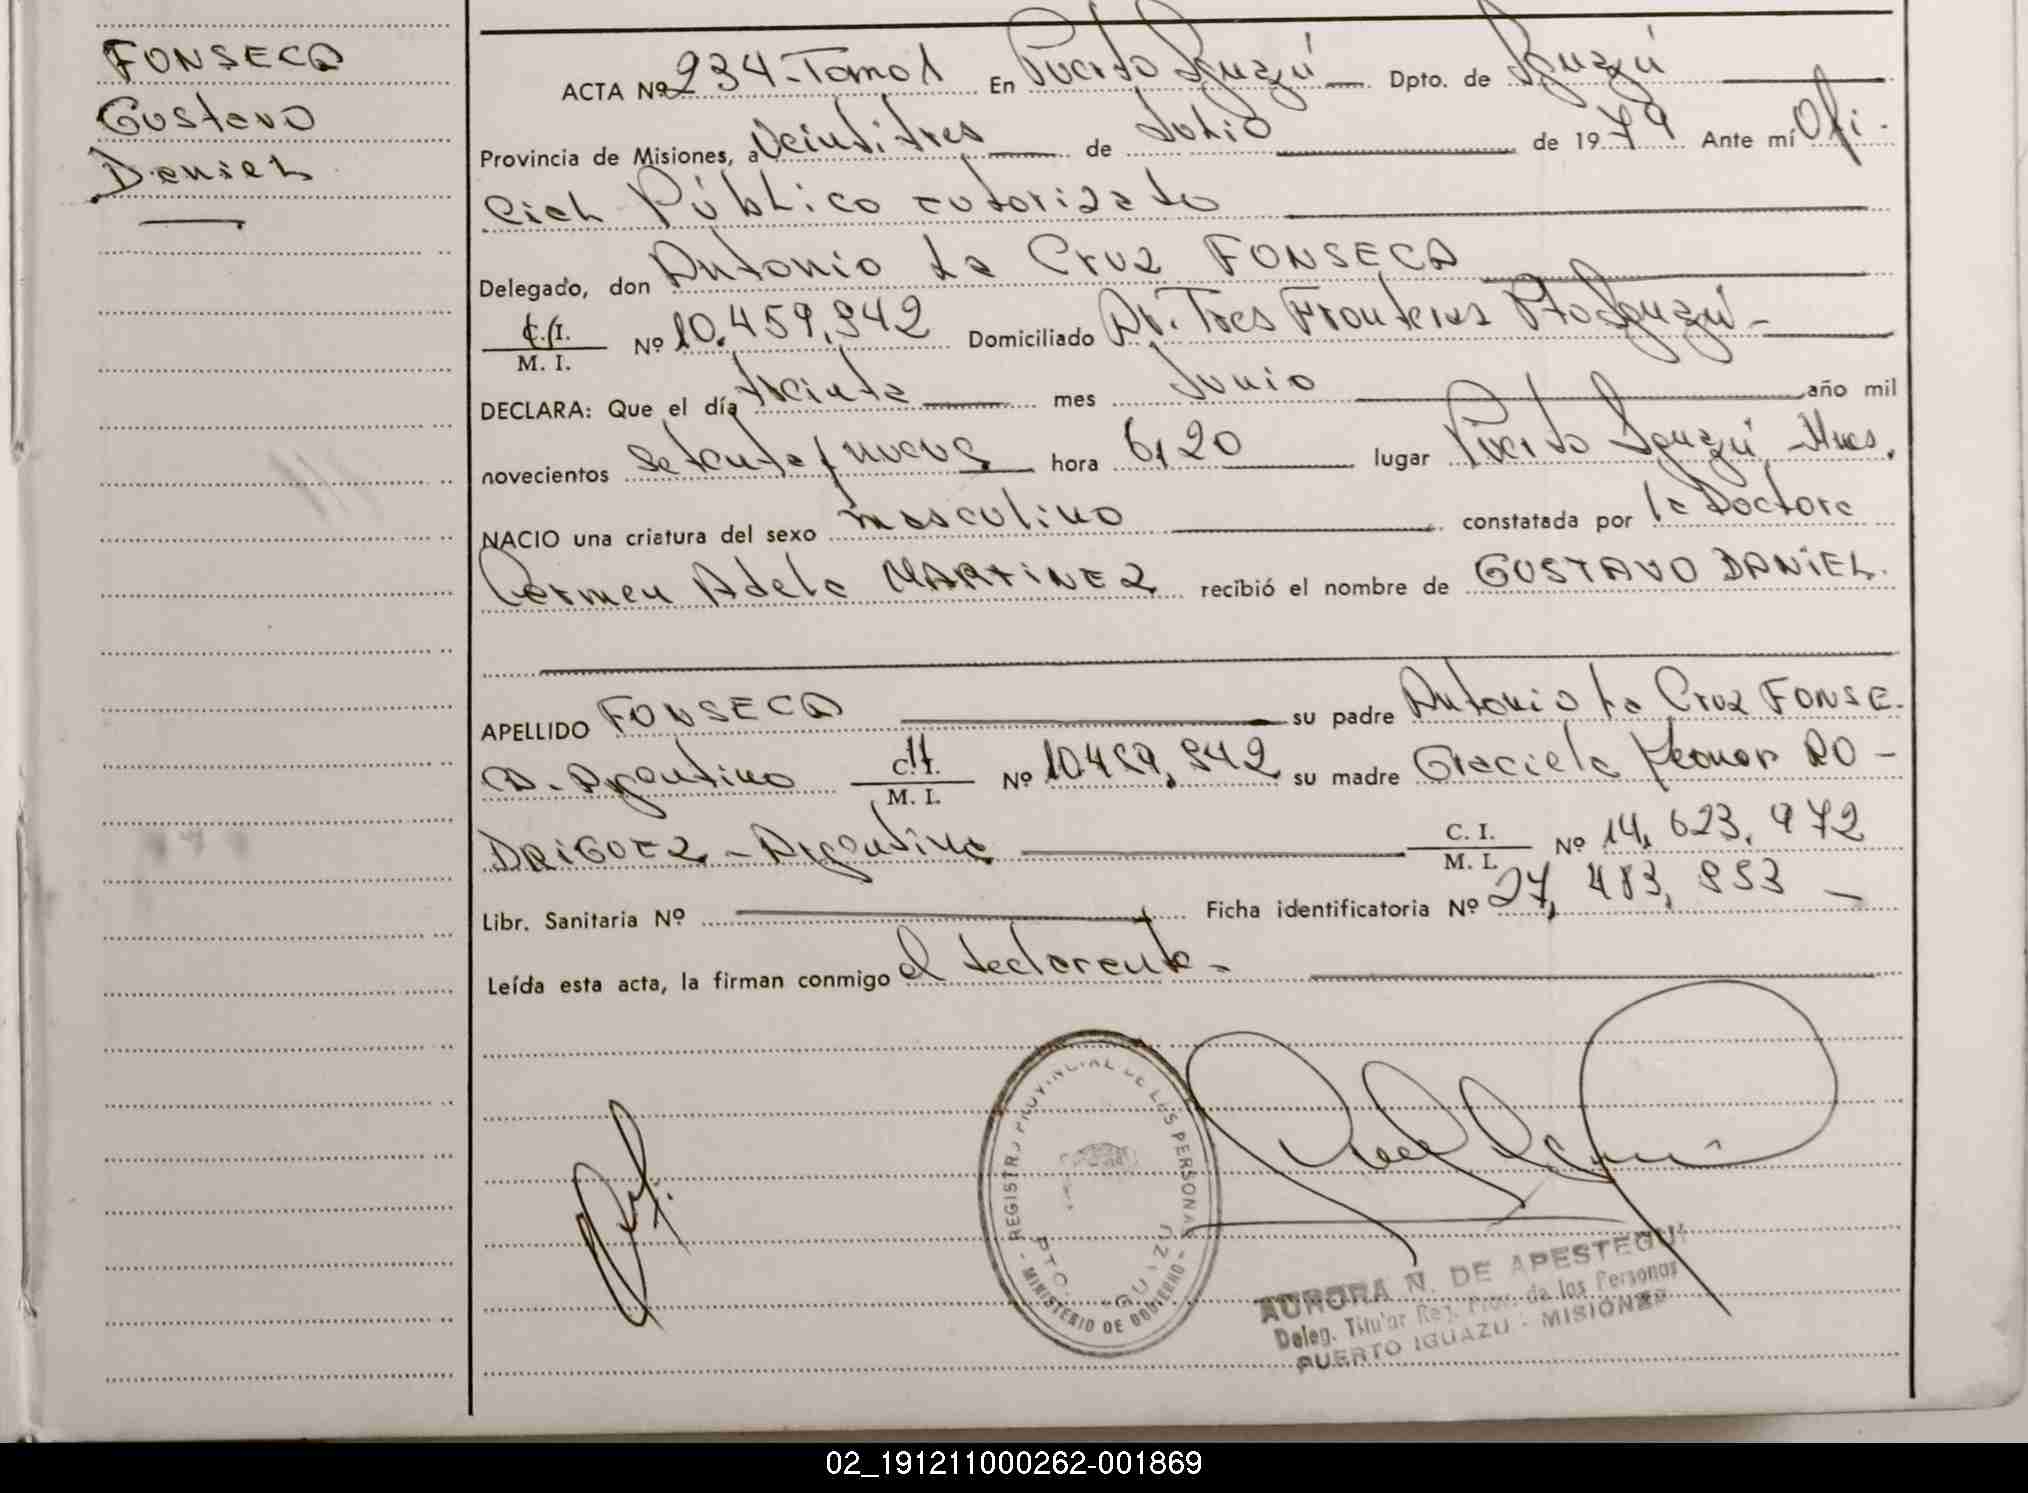 FONSECA
Gustavo
Daniel
ACTA Nº 234-Tomo 1 En Puerto Iguazú Dpto. de Iguazú
Provincia de Misiones, a Veintitres de Julio de 1979 Ante mí Ofi-
cial Público autorizado
Delegado, don Antonio La Cruz FONSECA
C. I.
M. I. Nº 10.459,942 Domiciliado Av. Tres Fronteras Pto Iguazú-
DECLARA: Que el día treinta mes Junio año mil
novecientos setenta y nueve hora 6,20 lugar Puerto Iguazú Mnes.
NACIO una criatura del sexo masculino constatada por la Doctora
Carmen Adela MARTINEZ recibió el nombre de GUSTAVO DANIEL.
APELLIDO FONSECA su padre Antonio La Cruz FONSE-
CA. Argentino C. I.
M. I. Nº 10.459,942 su madre Graciela Leonor RO-
DRIGUEZ - Argentina C. I.
M. I. Nº 14,623,972
Libr. Sanitaria Nº Ficha identificatoria Nº 27,483,853 -
Leída esta acta, la firman conmigo el declarante-
REGISTRO PROVINCIAL DE LAS PERSONAS
PTO. IGUAZU
- MINISTERIO DE GOBIERNO -
AURORA N. DE APESTEGUI
Deleg. Titular Reg. Prov. de las Personas
PUERTO IGUAZU - MISIONES
02_191211000262-001869